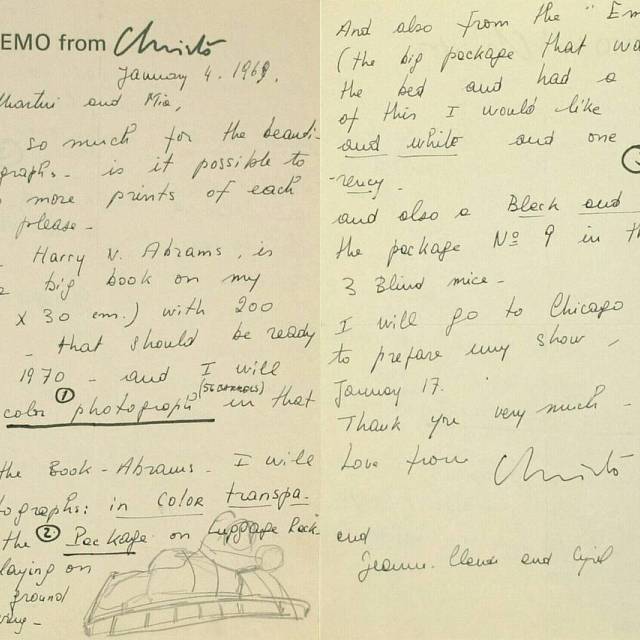 EMO from Christo
January 4. 1969.
and Mia,
so much for the beauti-
graphs. is it possible to
more prints of each
please -
Harry N. Abrams, is
big book on my
x 30 cm.) with 200
- that should be ready
1970 - and I will
(56 BARRELS)
color ① photograph in that
the Book - Abrams. I will
tographs: in color transpa-
the ② Package on Luggage Rack
laying on
ground
And also from the "Em
(the big package that wa
the bed and had a
of this I would like
and white and one
-rency.
and also a Black and
the package No 9 in th
3 Blind mice -
I will go to Chicago
to prepare my show,
January 17.
Thank you very much -
Love from Christo
and
Jeanne. Claude and Cyril